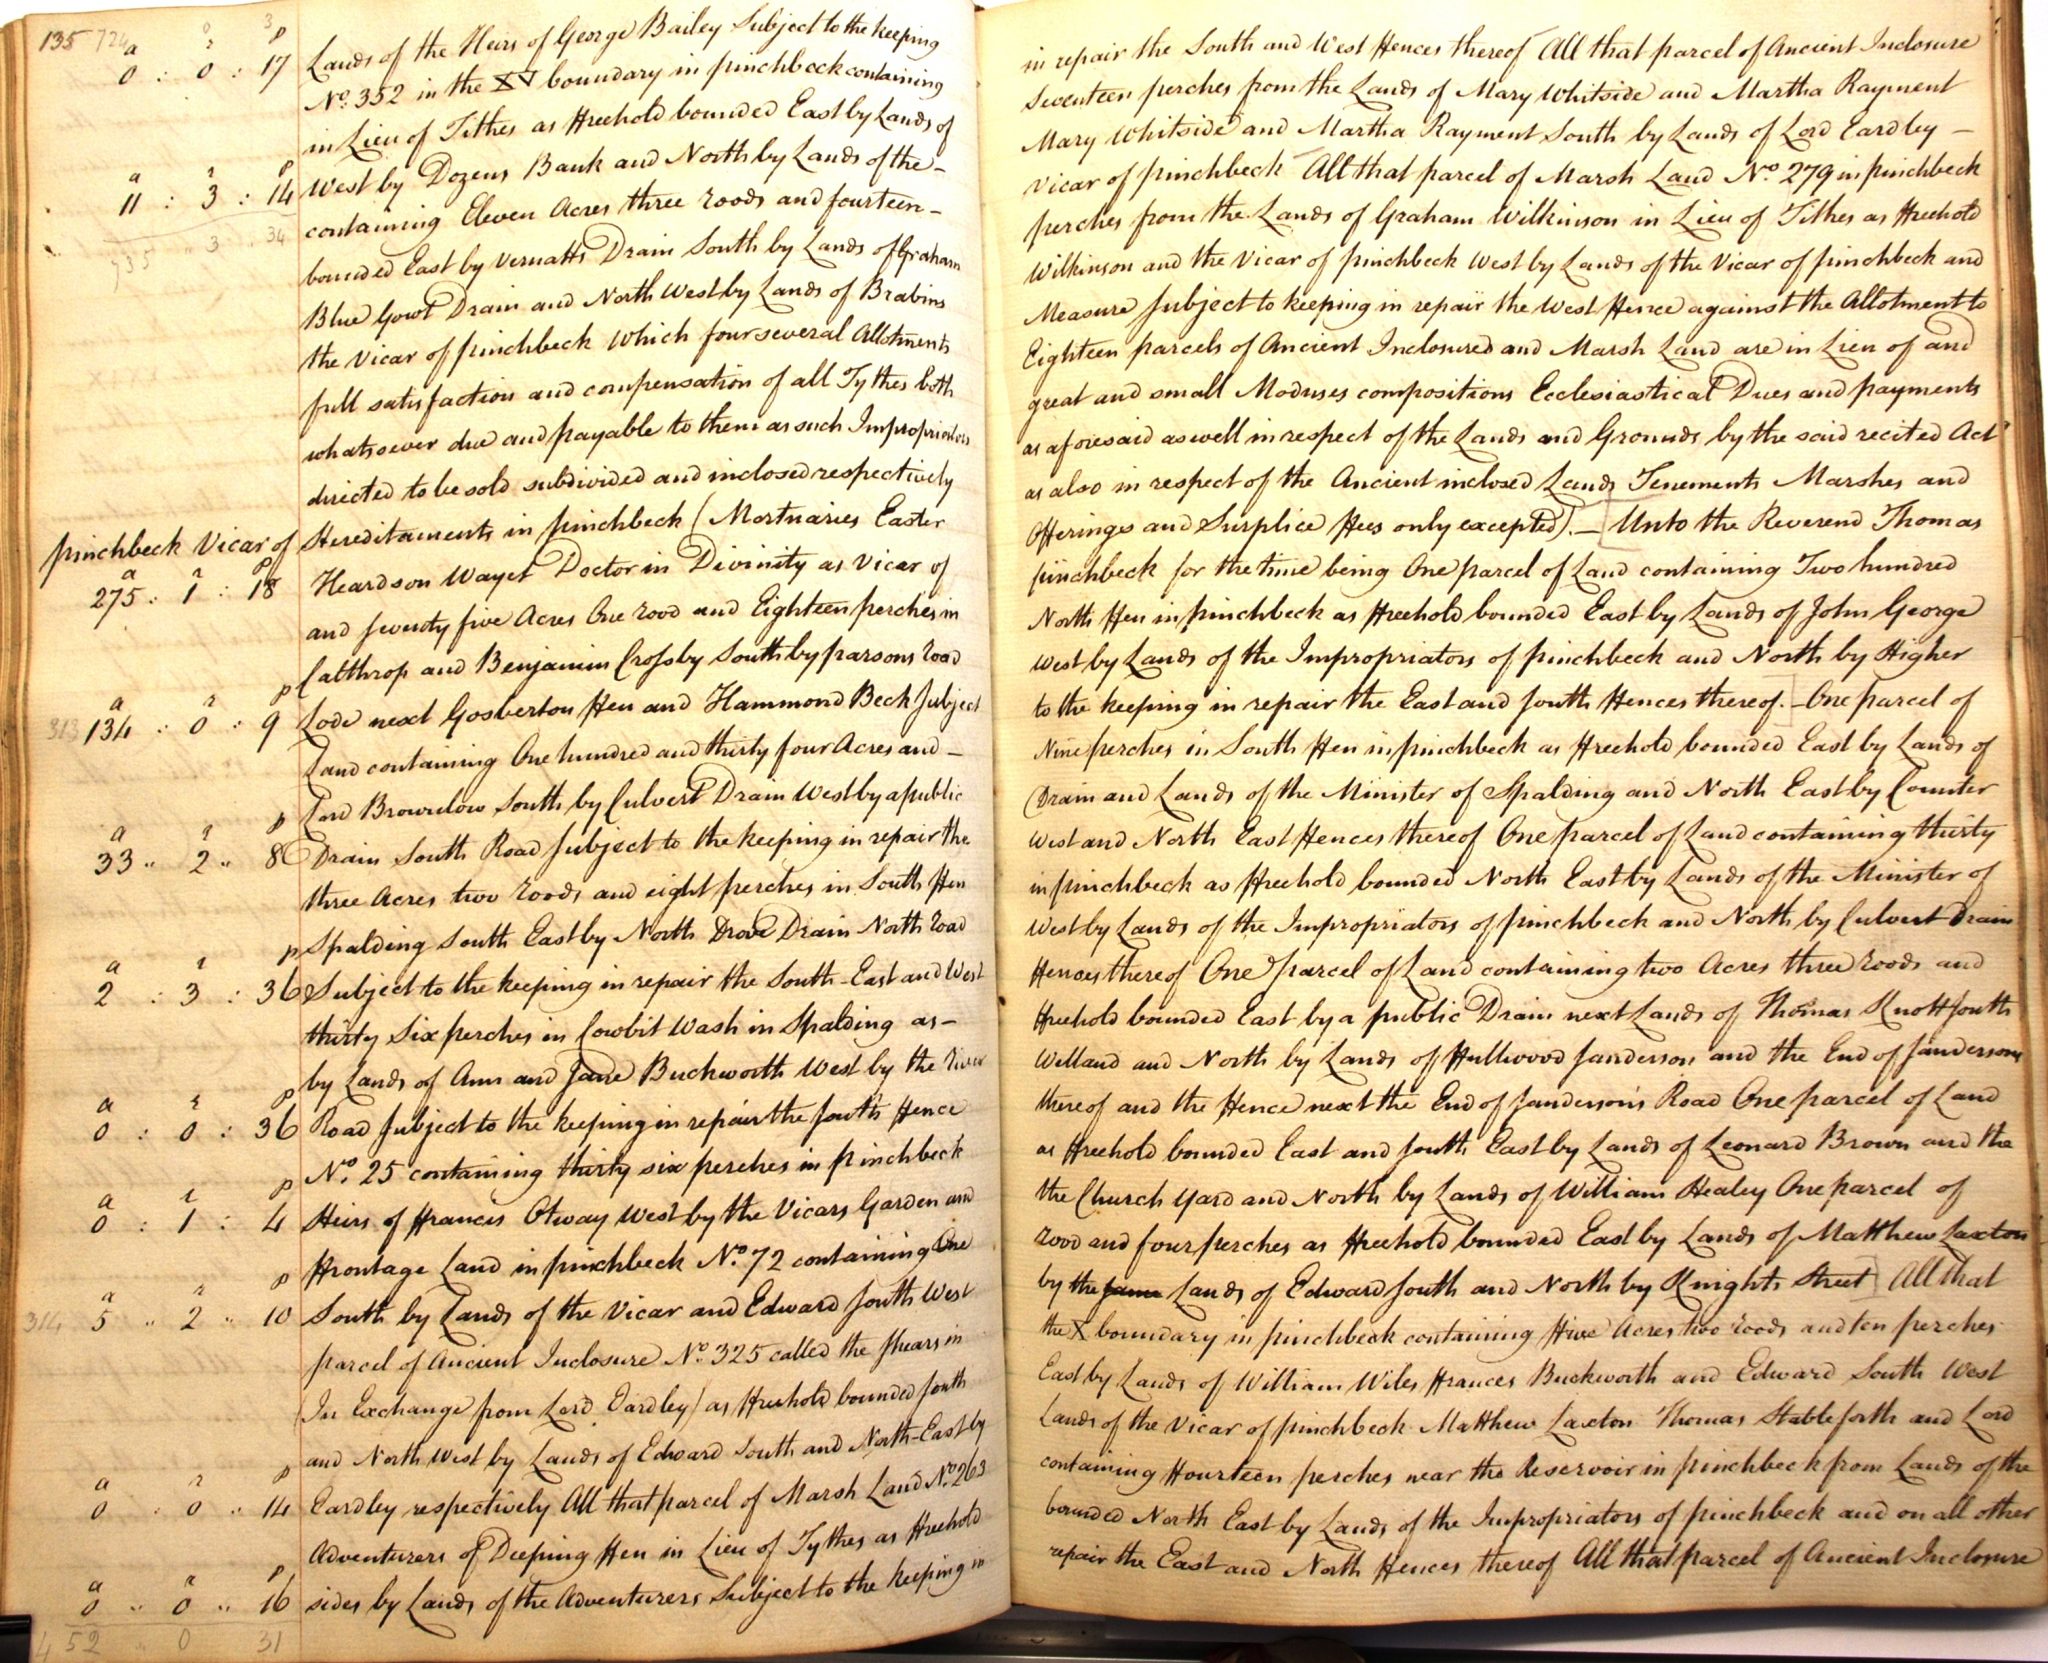 135 724 3
a r p
0 : 0 : 17 Lands of the Heirs of George Bailey Subject to the keeping in repair the South and West Fences thereof All that parcel of Ancient Inclosure
No. 352 in the XV boundary in pinchbeck containing Seventeen perches from the Lands of Mary Whitside and Martha Rayment
in Lieu of Tithes as Freehold bounded East by Lands of Mary Whitside and Martha Rayment South by Lands of Lord Eardley –
a r p
11 : 3 : 14 West by Dozens Bank and North by Lands of the – Vicar of pinchbeck All that parcel of Marsh Land No. 279 in pinchbeck
735 " 3 " 34 containing Eleven Acres three roods and fourteen – perches from the Lands of Graham Wilkinson in Lieu of Tithes as Freehold
bounded East by Vernatts Drain South by Lands of Graham Wilkinson and the Vicar of pinchbeck West by Lands of the Vicar of pinchbeck and
Blue Gowt Drain and North West by Lands of Brabins Measure Subject to keeping in repair the West Fence against the Allotment to
the Vicar of pinchbeck Which four several Allotments Eighteen parcels of Ancient Inclosured and Marsh Land are in Lieu of and
full satisfaction and compensation of all Tythes both great and small Moduses compositions Ecclesiastical Dues and payments
whatsoever due and payable to them as such Impropriators as aforesaid as well in respect of the Lands and Grounds by the said recited Act
directed to be sold subdivided and inclosed respectively as also in respect of the Ancient inclosed Lands Tenements Marshes and
Hereditaments in pinchbeck (Mortuaries Easter Offerings and Surplice Fees only excepted). – Unto the Reverend Thomas
pinchbeck Vicar of
a r p
275 : 1 : 18 Heardson Wayet Doctor in Divinity as Vicar of pinchbeck for the time being One parcel of Land containing Two hundred
and seventy five Acres One rood and Eighteen perches in North Fen in pinchbeck as Freehold bounded East by Lands of John George
Calthrop and Benjamin Crosby South by parsons road West by Lands of the Impropriators of pinchbeck and North by Higher
a r p
313 134 : 0 : 9 Lode next Gosberton Fen and Hammond Beck Subject to the keeping in repair the East and South Fences thereof. – One parcel of
Land containing One hundred and thirty four Acres and – Nine perches in South Fen in pinchbeck as Freehold bounded East by Lands of
Lord Brownlow South by Culvert Drain West by a public Drain and Lands of the Minister of Spalding and North East by Counter
a r p
33 " 2 " 8 Drain South Road Subject to the keeping in repair the West and North East Fences thereof One parcel of Land containing thirty
three Acres two roods and eight perches in South Fen in pinchbeck as Freehold bounded North East by Lands of the Minister of
Spalding South East by North Drove Drain North road West by Lands of the Impropriators of pinchbeck and North by Culvert Drain
a r p
2 : 3 : 36 Subject to the keeping in repair the South-East and West Fences thereof One parcel of Land containing two Acres three roods and
thirty Six perches in Cowbit Wash in Spalding as – Freehold bounded East by a public Drain next Lands of Thomas Knott South
by Lands of Ann and Jane Buckworth West by the river Welland and North by Lands of Fullwood Sanderson and the End of Sandersons
a r p
0 : 0 : 36 Road Subject to the keeping in repair the South Fence thereof and the Fence next the End of Sanderson's Road One parcel of Land
No. 25 containing thirty six perches in pinchbeck as Freehold bounded East and South East by Lands of Leonard Brown and the
a r p
0 : 1 : 4 Heirs of Francis Otway West by the Vicars Garden and the Church Yard and North by Lands of William Healey One parcel of
Frontage Land in pinchbeck No. 72 containing One rood and four perches as Freehold bounded East by Lands of Matthew Laxton
a r p
314 5 " 2 " 10 South by Lands of the Vicar and Edward South West by the same Lands of Edward South and North by Knights Street All that
parcel of Ancient Inclosure No. 325 called the Shears in the X boundary in pinchbeck containing Five Acres two roods and ten perches
(In Exchange from Lord Eardley) as Freehold bounded South East by Lands of William Wiles Frances Buckworth and Edward South West
and North West by Lands of Edward South and North-East by Lands of the Vicar of pinchbeck Matthew Laxton Thomas Stableforth and Lord
a r p
0 " 0 " 14 Eardley respectively All that parcel of Marsh Land No. 263 containing Fourteen perches near the Reservoir in pinchbeck from Lands of the
Adventurers of Deeping Fen in Lieu of Tythes as Freehold bounded North East by Lands of the Impropriators of pinchbeck and on all other
a r p
0 " 0 " 16 sides by Lands of the Adventurers Subject to the keeping in repair the East and North Fences thereof All that parcel of Ancient Inclosure
452 " 0 " 31